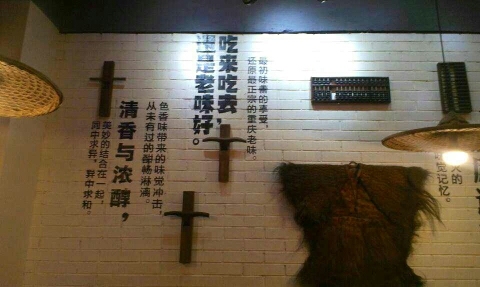 觉记忆。
最初味素的享受，
还原最正宗的重庆老味。
吃来吃去，
还是老味好。
色香味带来的味觉冲击，
从未有过的酣畅淋漓。
清香与浓醇，
美妙的结合在一起，
同中求异，异中求和。